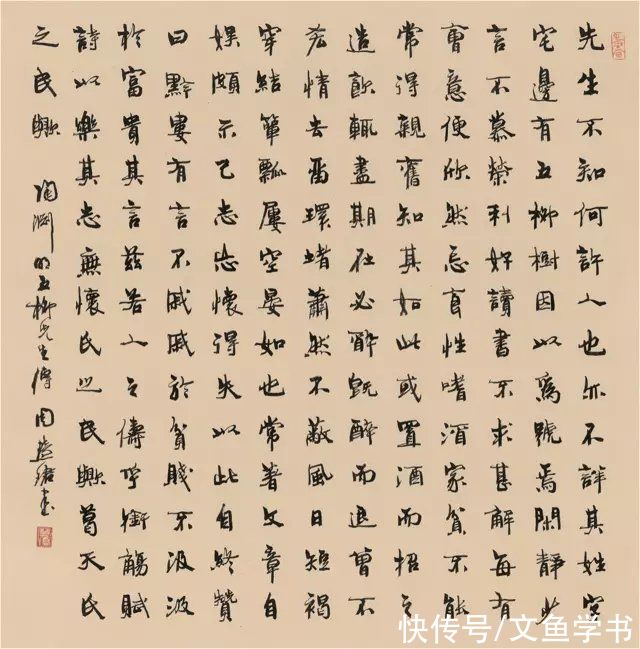 先生不知何許人也亦不詳其姓字
宅邊有五柳樹因以爲號焉閑靜少
言不慕榮利好讀書不求甚解每有
會意便欣然忘食性嗜酒家貧不能
常得親舊知其如此或置酒而招之
造飲輒盡期在必醉既醉而退曾不
吝情去留環堵蕭然不蔽風日短褐
穿結簞瓢屢空晏如也常著文章自
娛頗示己志忘懷得失以此自終贊
曰黔婁有言不戚戚於貧賤不汲汲
於富貴其言茲若人之儔乎銜觴賦
詩以樂其志無懷氏之民歟葛天氏
之民歟 陶淵明五柳先生傳 周 書
快传号/文鱼学书